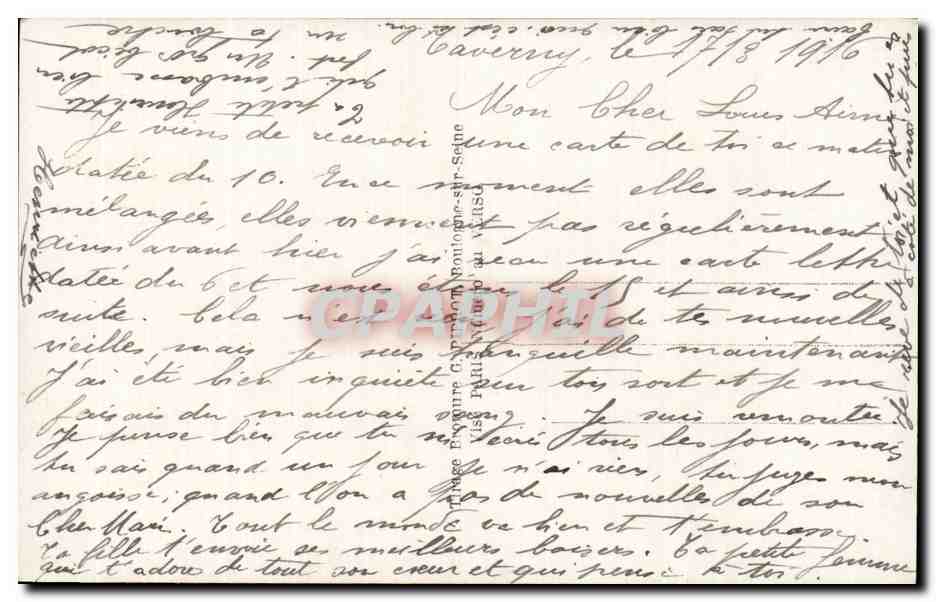 Taverny, le 17/3 1916
Mon Cher Louis Aimé
Je viens de recevoir une carte de toi ce matin
datée du 10. En ce moment elles sont
mélangées, elles viennent pas régulièrement
ainsi avant hier j'ai une carte lettre
datée du 6 et nous étions le 15 et ainsi de
suite. Cela n'est j'ai de tes nouvelles
vieilles, mais je suis tranquille maintenant
J'ai été bien inquiète sur tois sort et je me
faisais du mauvais sang. Je suis remontée
Je pense bien que tu m'écris tous les jours, mais
tu sais quand un jour je n'ai rien, tu juges mon
angoisse, quand l'on a pas de nouvelles de son
Cher Mari. Tout le monde va bien et t'embrasse.
Ta fille t'envoie ses meilleurs baisers. Ta petite femme
qui t'adore de tout son cœur et qui pense à toi.
Henriette
Je rêve de toi et que tu
à côté de moi et puis
Ta petite Henriette
qui t'embrasse bien
fort. Un gros bécot
Tirage Bromure G. PIPROT, Boulogne-sur-Seine
Visé PARIS, Numéro au VERSO
CPAPHIL